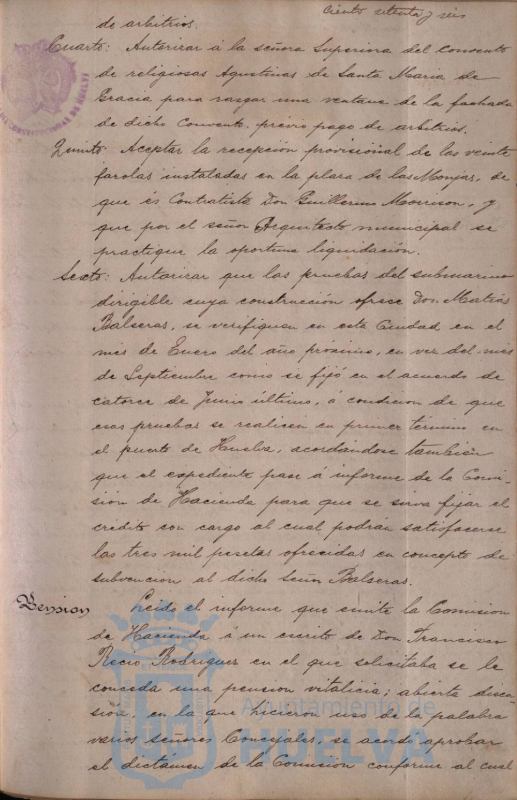 Ciento setenta y seis
de arbitrios.
Cuarto: Autorizar á la señora Superiora del Convento
de religiosas Agustinas de Santa Maria de
Gracia para rasgar una ventana de la fachada
de dicho Convento, previo pago de arbitrios.
Quinto: Aceptar la recepción provisional de las veinte
farolas instaladas en la plaza de las Monjas, de
que és Contratista Don Guillermo Morrison, y
que por el señor Arquitecto municipal se
practique la oportuna liquidación.
Sexto: Autorizar que las pruebas del submarino
dirigible cuya construcción ofrece Don Matias
Balseras, se verifiquen en esta Ciudad en el
mes de Enero del año próximo, en vez del mes
de Septiembre como se fijó en el acuerdo de
catorce de Junio último, á condicion de que
esas pruebas se realicen en primer término en
el puerto de Huelva, acordándose tambien
que el expediente pase á informe de la Comi-
sión de Hacienda para que se sirva fijar el
crédito con cargo al cual podran satisfacerse
las tres mil pesetas ofrecidas en concepto de
subvencion al dicho Señor Balseras.
Pension Leido el informe que emite la Comision
de Hacienda á un escrito de Don Francisco
Recio Rodriguez en el que solicitaba se le
conceda una pension vitalicia; abierta discu-
sión, en la que hicieron uso de la palabra
varios señores Concejales, se acordó aprobar
el dictámen de la Comision conforme al cual
Ayuntamiento de
HUELVA